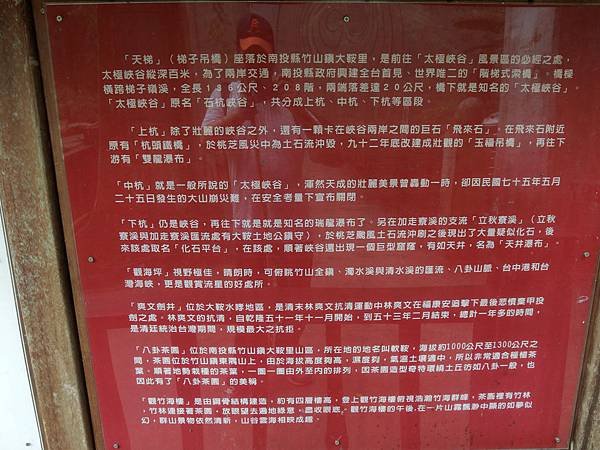 「天梯」(梯子吊橋)座落於南投縣竹山鎮大鞍里，是前往「太極峽谷」風景區的必經之處，
太極峽谷縱深百米，為了兩岸交通，南投縣政府興建全台首見、世界唯二的「階梯式索橋」。橋樑
橫跨梯子嶺溪，全長136公尺、208階，兩端落差達20公尺，橋下就是知名的「太極峽谷」。
「太極峽谷」原名「石杭峽谷」，共分成上杭、中杭、下杭等區段。
「上杭」除了壯麗的峽谷之外，還有一顆卡在峽谷兩岸之間的巨石「飛來石」。在飛來石附近
原有「杭頭鐵橋」，於桃芝風災中為土石流沖毀，九十二年底改建成壯觀的「玉福吊橋」，再往下
游有「雙龍瀑布」。
「中杭」就是一般所說的「太極峽谷」，渾然天成的壯麗美景曾轟動一時，卻因民國七十五年五月
二十五日發生的大山崩災難，在安全考量下宣布關閉。
「下杭」仍是峽谷，再往下就是就是知名的瑞龍瀑布了。另在加走寮溪的支流「立秋寮溪」(立秋
寮溪與加走寮溪匯流處有大鞍土地公鎮守)，於桃芝颱風土石流沖刷之後現出了大量疑似化石，後
來該處取名「化石平台」，在該處，順著峽谷還出現一個巨型窟窿，有如天井，名為「天井瀑布」。
「觀海坪」視野極佳，晴朗時，可俯眺竹山全鎮、濁水溪與清水溪的匯流、八卦山脈、台中港和台
灣海峽，更是觀賞流星的好處所。
「爽文劍井」位於大鞍水哮地區，是清末林爽文抗清運動中林爽文在福康安追擊下最後悲憤棄甲投
劍之處。林爽文的抗清，自乾隆五十一年十一月開始，到五十三年二月結束，總計一年多的時間，
是清廷統治台灣期間，規模最大之抗拒。
「八卦茶園」位於南投縣竹山鎮大鞍里山區，所在地的地名叫軟鞍，海拔約1000公尺至1300公尺之
間，茶園位於竹山鎮東隅山上，由於海拔高度夠高，濕度夠，氣溫土壤適中，所以非常適合種植茶
葉。順著地勢栽種的茶葉，一圈一圈由外至內的排列，因茶園造型奇特環繞土丘彷如八卦一般，也
因此有了「八卦茶園」的美稱。
「觀竹海樓」是由鋼骨結構建造，約有四層樓高，登上觀竹海樓俯視浩瀚竹海群峰，茶園裡有竹林
，竹林連接著茶園，放眼望去遍地綠意，盡收眼底。觀竹海樓的午後，在一片山霧飄渺中顯的如夢似
幻，群山景物依然清新，山谷雲海相映成趣。